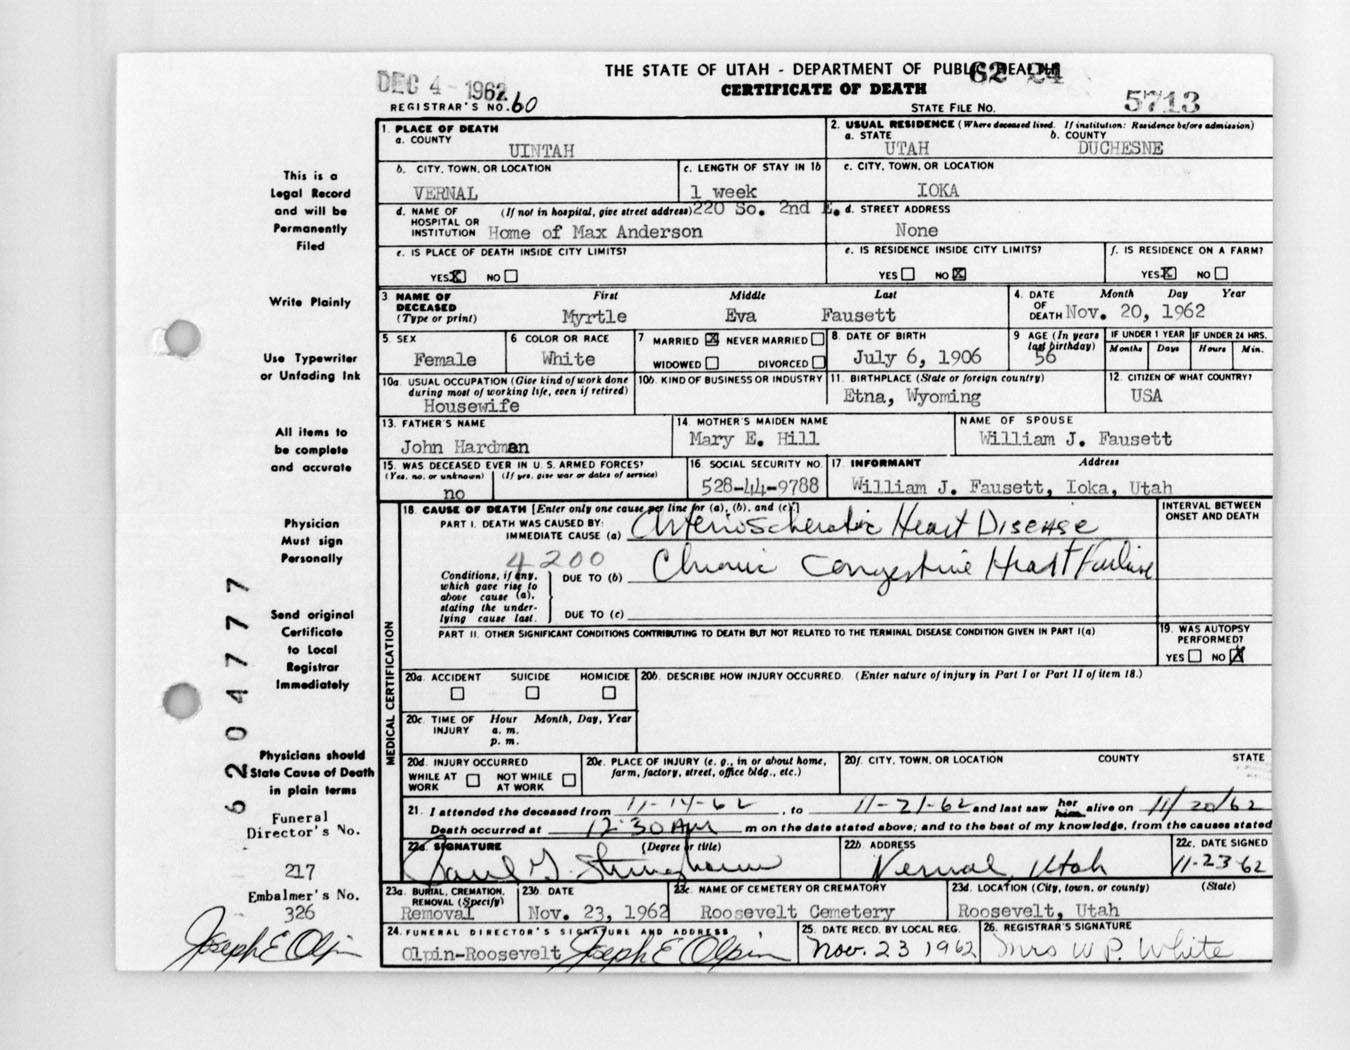 THE STATE OF UTAH - DEPARTMENT OF PUBLIC HEALTH 62 24
DEC 4 - 1962
CERTIFICATE OF DEATH
REGISTRAR'S NO. 60
STATE FILE NO. 5713
1. PLACE OF DEATH
a. COUNTY
UINTAH
2. USUAL RESIDENCE (Where deceased lived. If institution: Residence before admission)
a. STATE b. COUNTY
UTAH DUCHESNE
b. CITY, TOWN, OR LOCATION
VERNAL
c. LENGTH OF STAY IN 1b
1 week
c. CITY, TOWN, OR LOCATION
IOKA
d. NAME OF HOSPITAL OR INSTITUTION (If not in hospital, give street address) 220 So. 2nd E.
Home of Max Anderson
d. STREET ADDRESS
None
e. IS PLACE OF DEATH INSIDE CITY LIMITS?
YES X NO
e. IS RESIDENCE INSIDE CITY LIMITS?
YES NO X
f. IS RESIDENCE ON A FARM?
YES X NO
3. NAME OF DECEASED (Type or print)
First Middle Last
Myrtle Eva Fausett
4. DATE OF DEATH
Month Day Year
Nov. 20, 1962
5. SEX
Female
6 COLOR OR RACE
White
7 MARRIED X NEVER MARRIED
WIDOWED DIVORCED
8. DATE OF BIRTH
July 6, 1906
9 AGE (In years last birthday)
56
IF UNDER 1 YEAR
Months Days
IF UNDER 24 HRS.
Hours Min.
10a. USUAL OCCUPATION (Give kind of work done during most of working life, even if retired)
Housewife
10b. KIND OF BUSINESS OR INDUSTRY
11. BIRTHPLACE (State or foreign country)
Etna, Wyoming
12. CITIZEN OF WHAT COUNTRY?
USA
13. FATHER'S NAME
John Hardman
14. MOTHER'S MAIDEN NAME
Mary E. Hill
NAME OF SPOUSE
William J. Fausett
15. WAS DECEASED EVER IN U. S. ARMED FORCES?
(Yes, no, or unknown) (If yes, give war or dates of service)
no
16. SOCIAL SECURITY NO.
528-44-9788
17. INFORMANT Address
William J. Fausett, Ioka, Utah
MEDICAL CERTIFICATION
18. CAUSE OF DEATH [Enter only one cause per line for (a), (b), and (c).]
PART I. DEATH WAS CAUSED BY:
IMMEDIATE CAUSE (a) Arteriosclerotic Heart Disease
4200
Conditions, if any, which gave rise to above cause (a), stating the underlying cause last.
DUE TO (b) Chronic Congestive Heart Failure
DUE TO (c)
INTERVAL BETWEEN ONSET AND DEATH
PART II. OTHER SIGNIFICANT CONDITIONS CONTRIBUTING TO DEATH BUT NOT RELATED TO THE TERMINAL DISEASE CONDITION GIVEN IN PART I(a)
19. WAS AUTOPSY PERFORMED?
YES NO X
20a. ACCIDENT SUICIDE HOMICIDE
20b. DESCRIBE HOW INJURY OCCURRED. (Enter nature of injury in Part I or Part II of item 18.)
20c. TIME OF INJURY Hour Month, Day, Year
a. m.
p. m.
20d. INJURY OCCURRED
WHILE AT WORK NOT WHILE AT WORK
20e. PLACE OF INJURY (e. g., in or about home, farm, factory, street, office bldg., etc.)
20f. CITY, TOWN, OR LOCATION COUNTY STATE
21. I attended the deceased from 11-14-62, to 11-21-62 and last saw her him alive on 11/20/62
Death occurred at 12:30 AM m on the date stated above; and to the best of my knowledge, from the causes stated
22a. SIGNATURE (Degree or title)
Paul G. Stringham
22b. ADDRESS
Vernal, Utah
22c. DATE SIGNED
11-23-62
23a. BURIAL, CREMATION, REMOVAL (Specify)
Removal
23b. DATE
Nov. 23, 1962
23c. NAME OF CEMETERY OR CREMATORY
Roosevelt Cemetery
23d. LOCATION (City, town, or county) (State)
Roosevelt, Utah
24. FUNERAL DIRECTOR'S SIGNATURE AND ADDRESS
Olpin-Roosevelt Joseph E Olpin
25. DATE RECD. BY LOCAL REG.
Nov. 23 1962
26. REGISTRAR'S SIGNATURE
Mrs W P. White
This is a
Legal Record
and will be
Permanently
Filed
Write Plainly
Use Typewriter
or Unfading Ink
All items to
be complete
and accurate
Physician
Must sign
Personally
Send original
Certificate
to Local
Registrar
Immediately
Physicians should
State Cause of Death
in plain terms
6204777
Funeral
Director's No.
217
Embalmer's No.
326
Joseph E Olpin